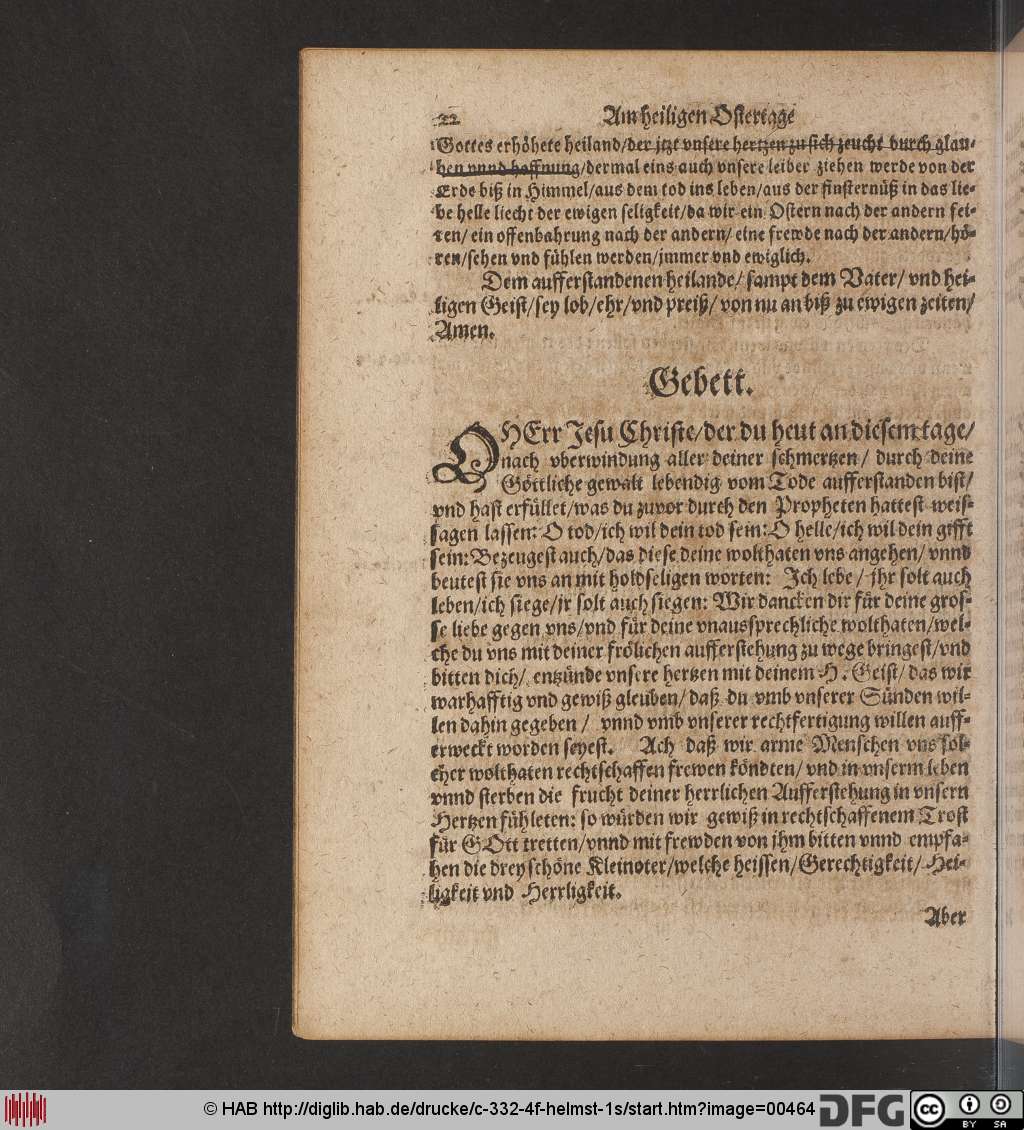 22 Am heiligen Ostertage
Gottes erhöhete heiland/der jtzt vnsere hertzen zu sich zeucht durch glau-
ben vnnd hoffnung/dermal eins auch vnsere leiber ziehen werde von der
Erde biß in Himmel/aus dem tod ins leben/aus der finsternüß in das lie-
be helle liecht der ewigen seligkeit/da wir ein Ostern nach der andern fei-
ren/ ein offenbahrung nach der andern/ eine frewde nach der andern/hö-
ren/sehen vnd fühlen werden/jmmer vnd ewiglich.
Dem aufferstandenen heilande/ sampt dem Vater/ vnd hei-
ligen Geist/sey lob/ehr/vnd preiß/ von nu an biß zu ewigen zeiten/
Amen.
Gebett.
O HErr Jesu Christe/der du heut an diesem tage/
nach vberwindung aller deiner schmertzen/ durch deine
Göttliche gewalt lebendig vom Tode aufferstanden bist/
vnd hast erfüllet/was du zuvor durch den Propheten hattest weis-
sagen lassen: O tod/ich wil dein tod sein: O helle/ich wil dein gifft
sein: Bezeugest auch/das diese deine wolthaten vns angehen/ vnnd
beutest sie vns an mit holdseligen worten: Ich lebe/ jhr solt auch
leben/ich siege/jr solt auch siegen: Wir dancken dir für deine gros-
se liebe gegen vns/vnd für deine vnaussprechliche wolthaten/wel-
che du vns mit deiner frölichen aufferstehung zu wege bringest/vnd
bitten dich/ entzünde vnsere hertzen mit deinem H. Geist/ das wir
warhafftig vnd gewiß gleuben/ daß du vmb vnserer Sünden wil-
len dahin gegeben/ vnnd vmb vnserer rechtfertigung willen auff-
erweckt worden seyest. Ach daß wir arme Menschen vns sol-
cher wolthaten rechtschaffen frewen köndten/ vnd in vnserm leben
vnnd sterben die frucht deiner herrlichen Aufferstehung in vnsern
Hertzen fühleten: so würden wir gewiß in rechtschaffenem Trost
für GOtt tretten/vnnd mit frewden von jhm bitten vnnd empfa-
hen die drey schöne Kleinoter/welche heissen/Gerechtigkeit/ Hei-
ligkeit vnd Herrligkeit.
Aber
© HAB http://diglib.hab.de/drucke/c-332-4f-helmst-1s/start.htm?image=00464 DFG cc BY SA